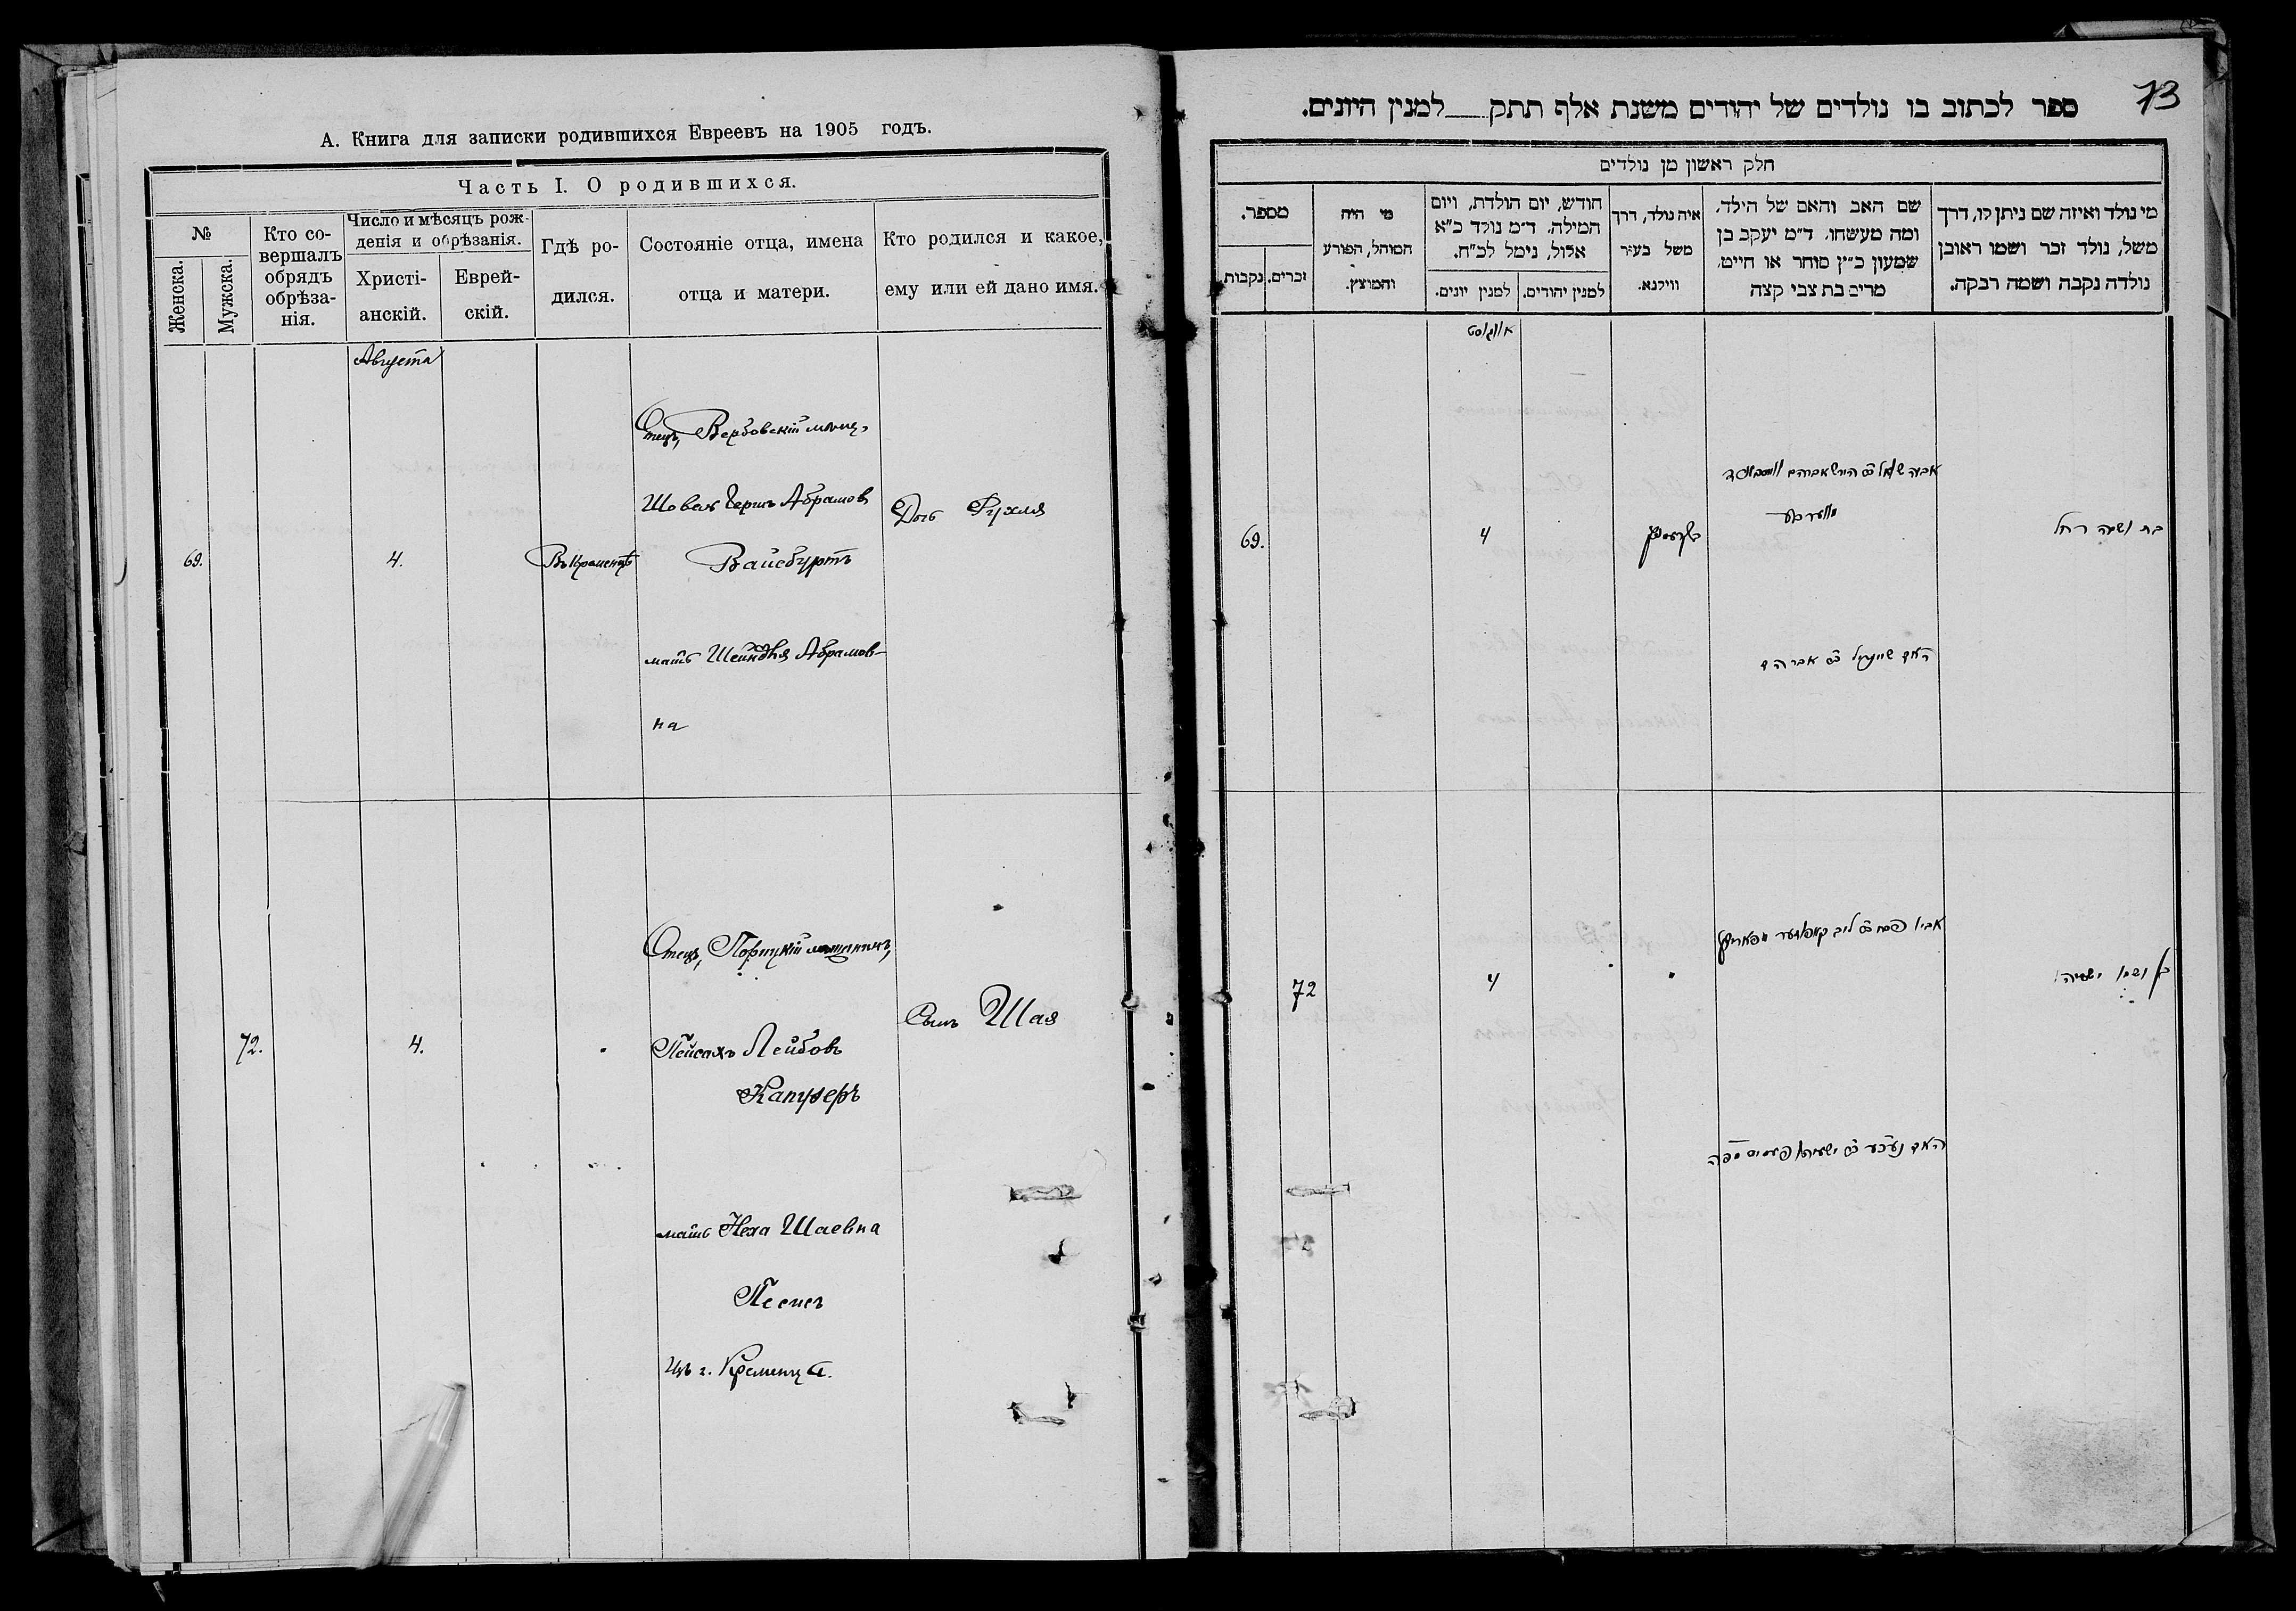 А. Книга для записки родившихся Евреевъ на 1905 годъ.
Часть I. О родившихся.
№
Женска.
Мужска.
Кто со-
вершалъ
обрядъ
обрѣза-
нія.
Число и мѣсяцъ рож-
денія и обрѣзанія.
Христі-
анскій.
Еврей-
скій.
Гдѣ ро-
дился.
Состояніе отца, имена
отца и матери.
Кто родился и какое,
ему или ей дано имя.
Августа
69.
4.
Въ Кременцѣ
Отецъ, Вербовскій мѣщ.
Шовель Герш Абрамовъ
Вайсбуртъ
мать Шейндля Абрамов-
на
Дочь Рухля
72.
4.
Отецъ, Порицкій мѣщанинъ,
Пейсахъ Лейбовъ
Капузеръ
мать Неха Шаевна
Песисъ
Изъ г. Кременца.
Сынъ Шая
73
ספר לכתוב בו נולדים של יהודים משנת אלף תתק למנין היונים.
חלק ראשון מן נולדים
מי נולד ואיזה שם ניתן לו, דרך
משל, נולד זכר ושמו ראובן
נולדה נקבה ושמה רבקה.
שם האב והאם של הילד,
ומה מעשהו. ד״מ יעקב בן
שמעון כ״ץ סוחר או חייט,
מרים בת צבי קצה
איה נולד, דרך
משל בעיר
ווילנא.
חודש, יום הולדת, ויום
המילה. ד״מ נולד כ״א
אלול, נימל לכ״ח.
למנין יהודים.
למנין יונים.
מי היה
המוהל, הפורע
והמוצץ.
מספר.
זכרים.
נקבות.
אווגוסט
69.
4
קרעמניץ
בת ושמה רחל
72
4
בן ושמו ישעיהו